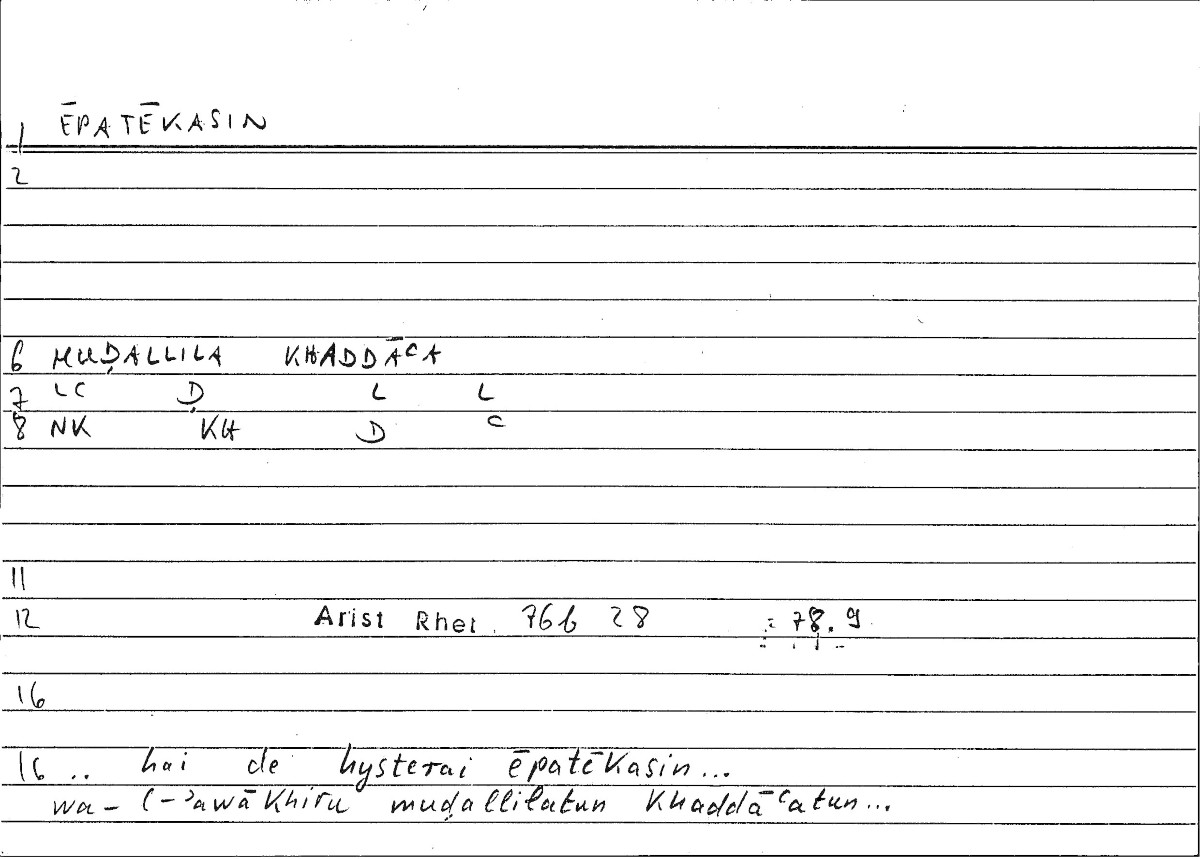 1 ĒPATĒKASIN
2
6 MUḌALLILA KHADDĀᶜA
7 LC Ḍ L L
8 NK KH D ᶜ
11
12 Arist Rhet. 76b 28 = 78.9
16
16 .. hai de hysterai ēpatēkasin...
wa-l-ʾawākhiru muḍallilatun khaddāᶜatun...